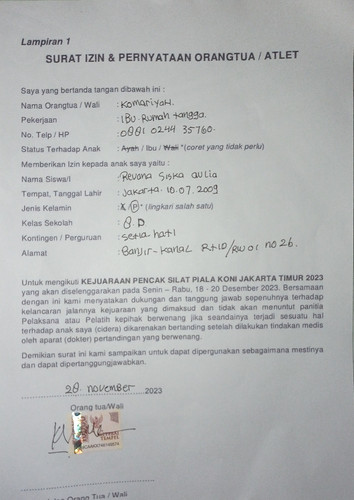 Lampiran 1
SURAT IZIN & PERNYATAAN ORANGTUA / ATLET
Saya yang bertanda tangan dibawah ini :
Nama Orangtua / Wali : Komariyah.
Pekerjaan : Ibu Rumah tangga.
No. Telp / HP : 0881 0244 35760.
Status Terhadap Anak : Ayah / Ibu / Wali *(coret yang tidak perlu)
Memberikan Izin kepada anak saya yaitu :
Nama Siswa/I : Revana Siska aulia
Tempat, Tanggal Lahir : Jakarta. 10.07.2009
Jenis Kelamin : L / P * (lingkari salah satu)
Kelas Sekolah : 8.D
Kontingen / Perguruan : Setia hati
Alamat : Banjir-kanal Rt 10/RW 01 no 26.
Untuk mengikuti KEJUARAAN PENCAK SILAT PIALA KONI JAKARTA TIMUR 2023
yang akan diselenggarakan pada Senin – Rabu, 18 - 20 Desember 2023. Bersamaan
dengan ini kami menyatakan dukungan dan tanggung jawab sepenuhnya terhadap
kelancaran jalannya kejuaraan yang dimaksud dan tidak akan menuntut panitia
Pelaksana atau Pelatih kepihak berwenang jika seandainya terjadi sesuatu hal
terhadap anak saya (cidera) dikarenakan bertanding setelah dilakukan tindakan medis
oleh aparat (dokter) pertandingan yang berwenang.
Demikian surat ini kami sampaikan untuk dapat dipergunakan sebagaimana mestinya
dan dapat dipertanggungjawabkan.
28. november 2023
Orang tua/Wali
TEMPEL
Orang Tua / Wali